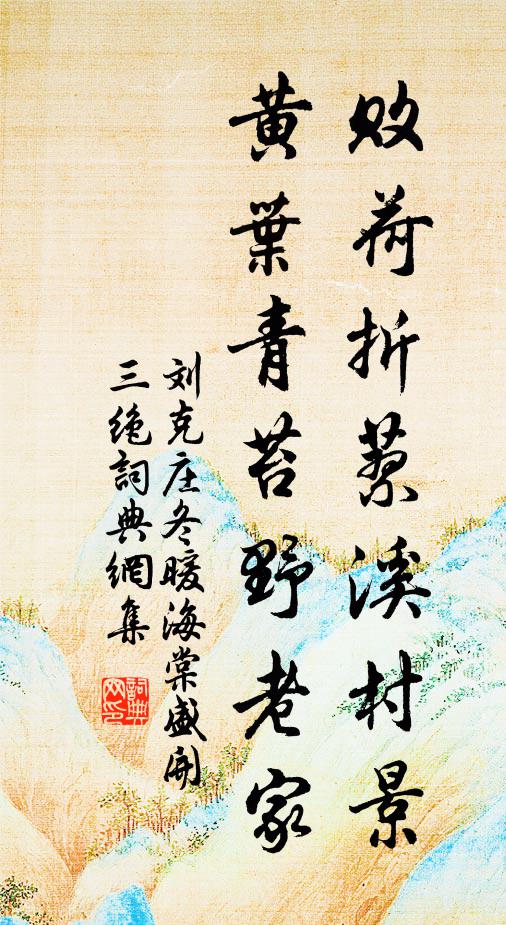 败荷折蓼溪村景
黄葉青苔野老家
刘克庄冬暖海棠盛開
三绝詞典網集
詞典
网印